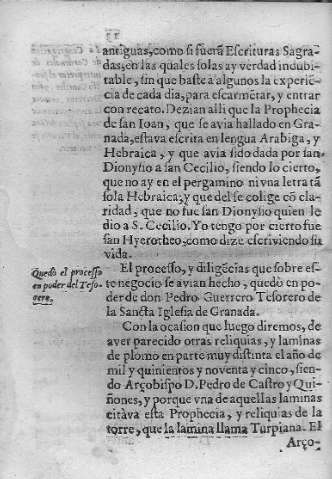 antiguas, como si fuerã Escrituras Sagra-
das, en las quales solas ay verdad indubi-
table, sin que baste a algunos la experiẽ-
cia de cada dia, para escarmẽtar, y entrar
con recato. Dezian alli que la Prophecia
de san Ioan, que se avia hallado en Gra-
nada, estava escrita en lengua Arabiga, y
Hebraica, y que avia sido dada por san
Dionysio a san Cecilio, siendo lo cierto,
que no ay en el pergamino ni vna letra tã
sola Hebraica; y que del se colige cõ cla-
ridad, que no fue san Dionysio quien le
dio a S. Cecilio. Yo tengo por cierto fue
san Hyerotheo, como dize escriviendo su
vida.
El processo, y diligẽcias que sobre es-
te negocio se avian hecho, quedò en po-
der de don Pedro Guerrero Tesorero de
la Sancta Iglesia de Granada.
Quedò el processo
en poder del Teso-
rero.
Con la ocasion que luego diremos, de
aver parecido otras reliquias, y laminas
de plomo en parte muy distinta el año de
mil y quinientos y noventa y cinco, sien-
do Arçobispo D. Pedro de Castro y Qui-
ñones, y porque vna de aquellas laminas
citàva esta Prophecia, y reliquias de la
torre, que la lamina llama Turpiana. El
Arço-